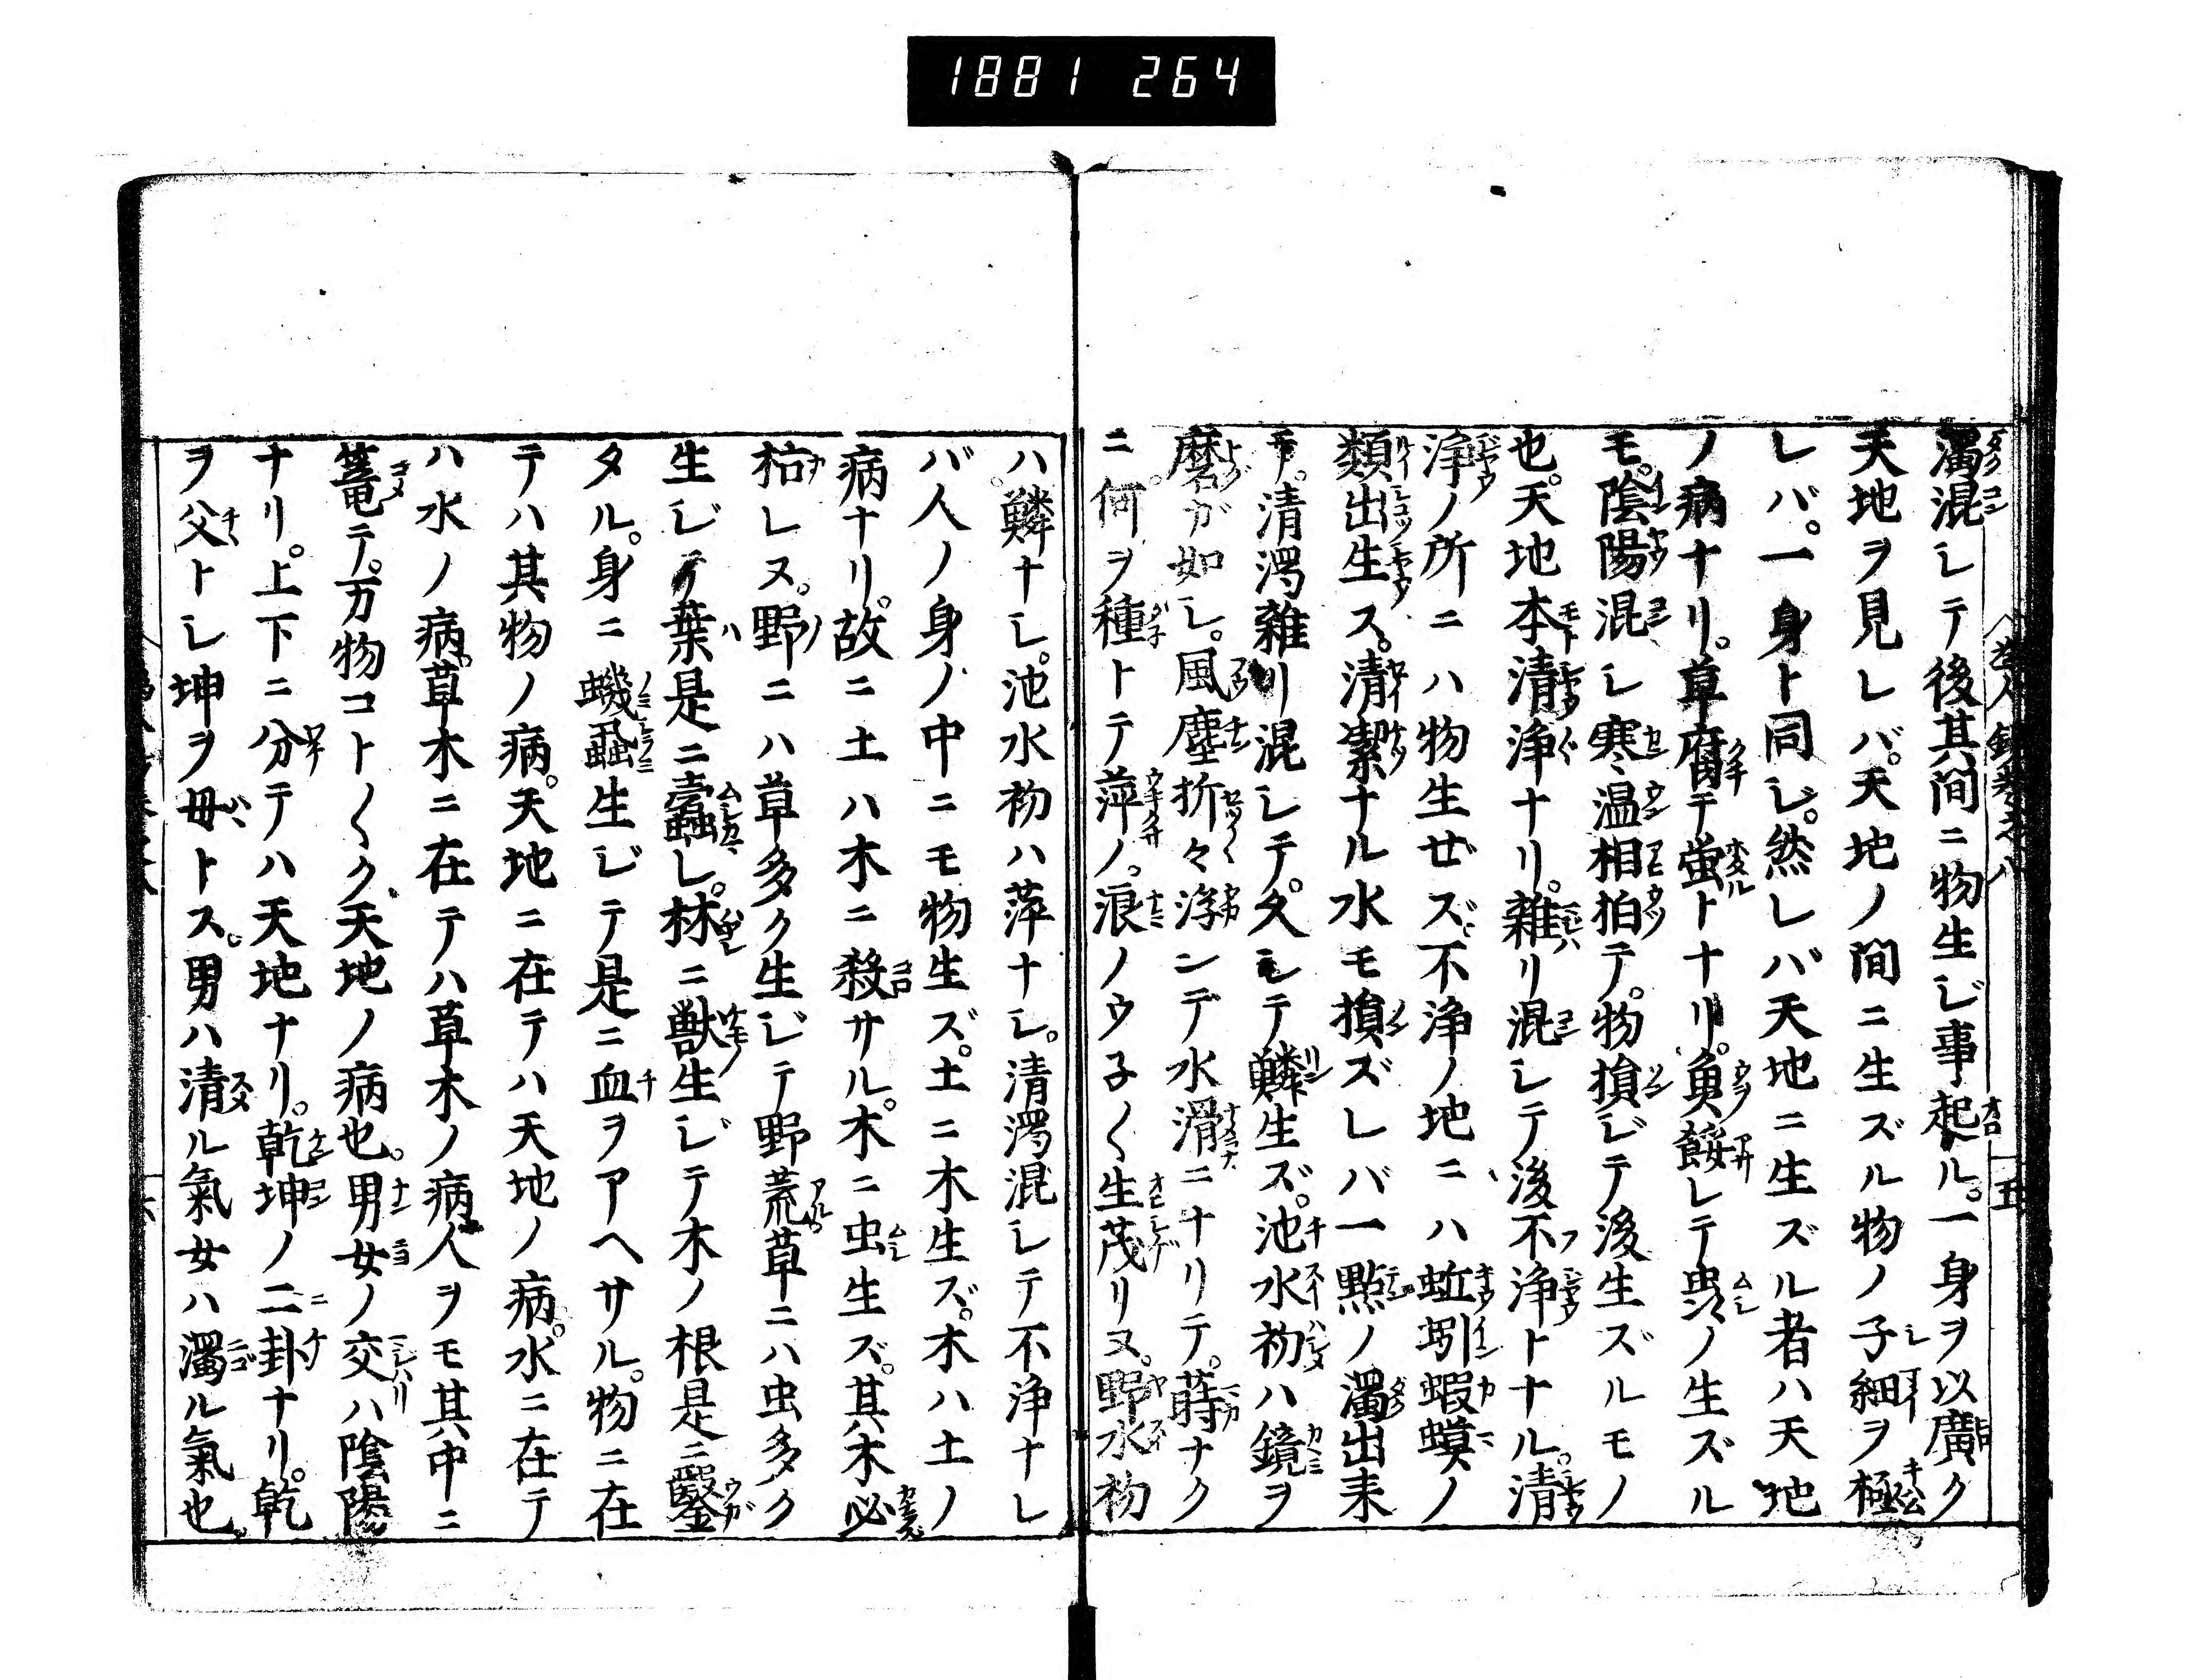 1881 264
濁混シテ後其間ニ物生ジ事起ル。一身ヲ以廣ク
天地ヲ見レバ。天地ノ間ニ生ズル物ノ子細ヲ極
レバ。一身ト同シ。然レバ天地ニ生ズル者ハ天地
ノ病ナリ。草腐テ蛍トナリ。魚餒レテ虫ノ生ズル
モ。陰陽混シ寒温相拍テ。物損ジテ後生ズルモノ
也。天地本清浄ナリ。雑リ混シテ後不浄トナル。清
浄ノ所ニハ物生ぜズ不浄ノ地ニハ蚯蚓蝦蟆ノ
類出生ス。清潔ナル水モ損ズレバ一點ノ濁出来
テ。清濁雑リ混シテ。久シテ鱗生ズ。池水初ハ鏡ヲ
磨ガ如シ。風塵折々浮ンデ水滑ニナリテ。蒔ナク
ニ。何ヲ種トテ萍ノ。浪ノウ子〱生茂リヌ。野水初
ハ。鱗ナシ。池水初ハ萍ナシ。清濁混シテ不浄ナレ
バ人ノ身ノ中ニモ物生ズ。土ニ木生ズ。木ハ土ノ
病ナリ。故ニ土ハ木ニ殺サル。木ニ虫生ズ。其木必
枯レヌ。野ニハ草多ク生ジテ野荒草ニハ虫多ク
生ジテ葉是ニ蠧シ。林ニ獣生ジテ木ノ根是ニ鑿
タル。身ニ蟣虱生ジテ是ニ血ヲアヘサル。物ニ在
テハ其物ノ病。天地ニ在テハ天地ノ病。水ニ在テ
ハ水ノ病。草木ニ在テハ草木ノ病人ヲモ其中ニ
篭テ。万物コト〱ク。天地ノ病也。男女ノ交ハ陰陽
ナリ。上下ニ分テハ天地ナリ。乾坤ノ二卦ナリ。乾
ヲ父トシ坤ヲ毋トス。男ハ清ル氣女ハ濁ル氣也。